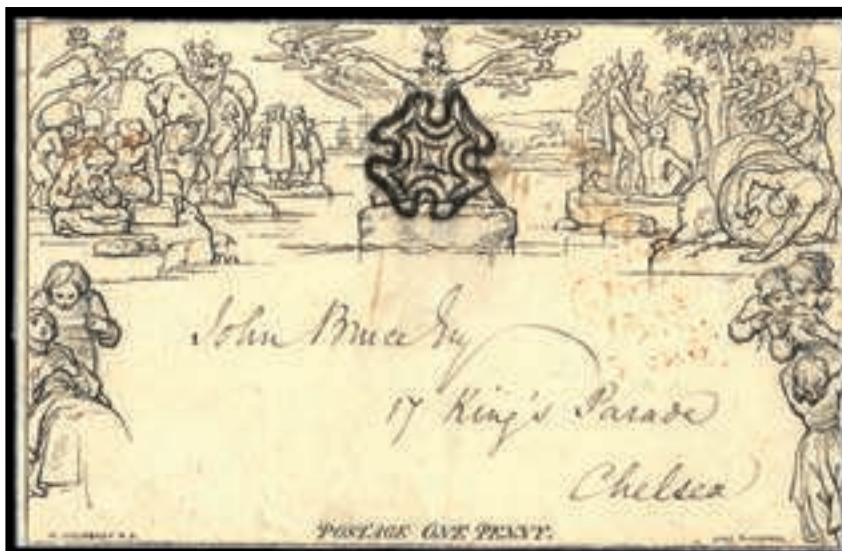 John Bruce Esq
17 King's Parade
Chelsea
POSTAGE ONE PENNY.